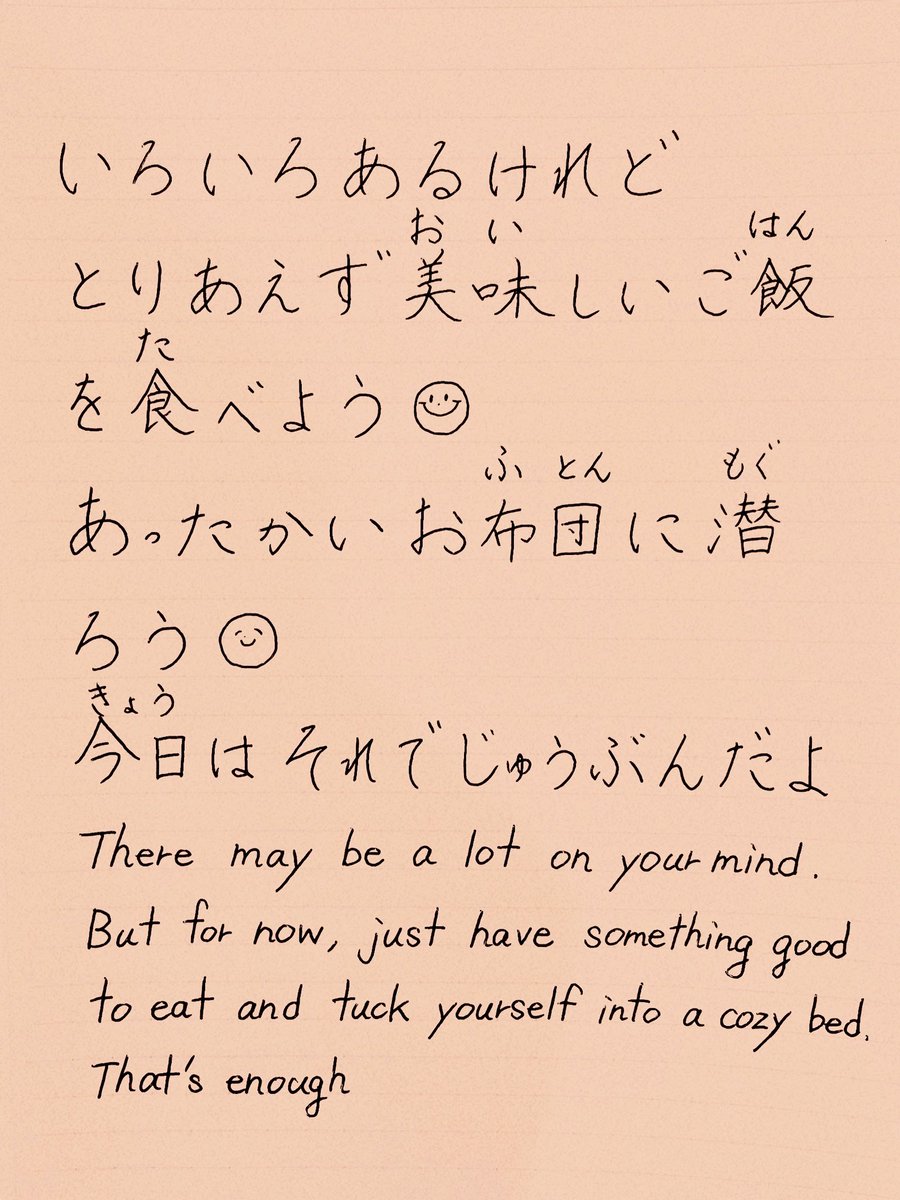 いろいろあるけれど
おい はん
とりあえず美味しいご飯
た
を食べよう
ふとん もぐ
あったかいお布団に潜
ろう
きょう
今日はそれでじゅうぶんだよ
There may be a lot on your mind.
But for now, just have something good
to eat and tuck yourself into a cozy bed.
That's enough